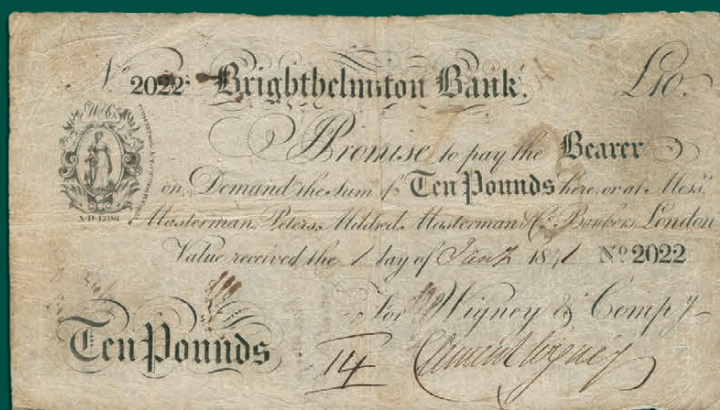 No 2022 Brighthelmston Bank. £10.
I Promise to pay the Bearer
on Demand the Sum of Ten Pounds here, or at Messrs
Masterman, Peters, Mildred, Masterman & Co. Bankers, London
Value received the 1 day of Jany 1841 No 2022
For Wigney & Compy
Ten Pounds
14
A.D. 1796